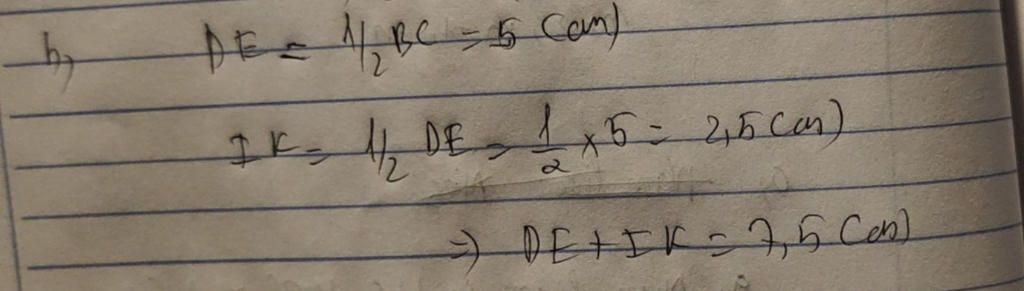 b, DE = 1/2 BC = 5 (cm)
IK = 1/2 DE = 1/2 x 5 = 2,5 (cm)
=> DE + IK = 7,5 (cm)